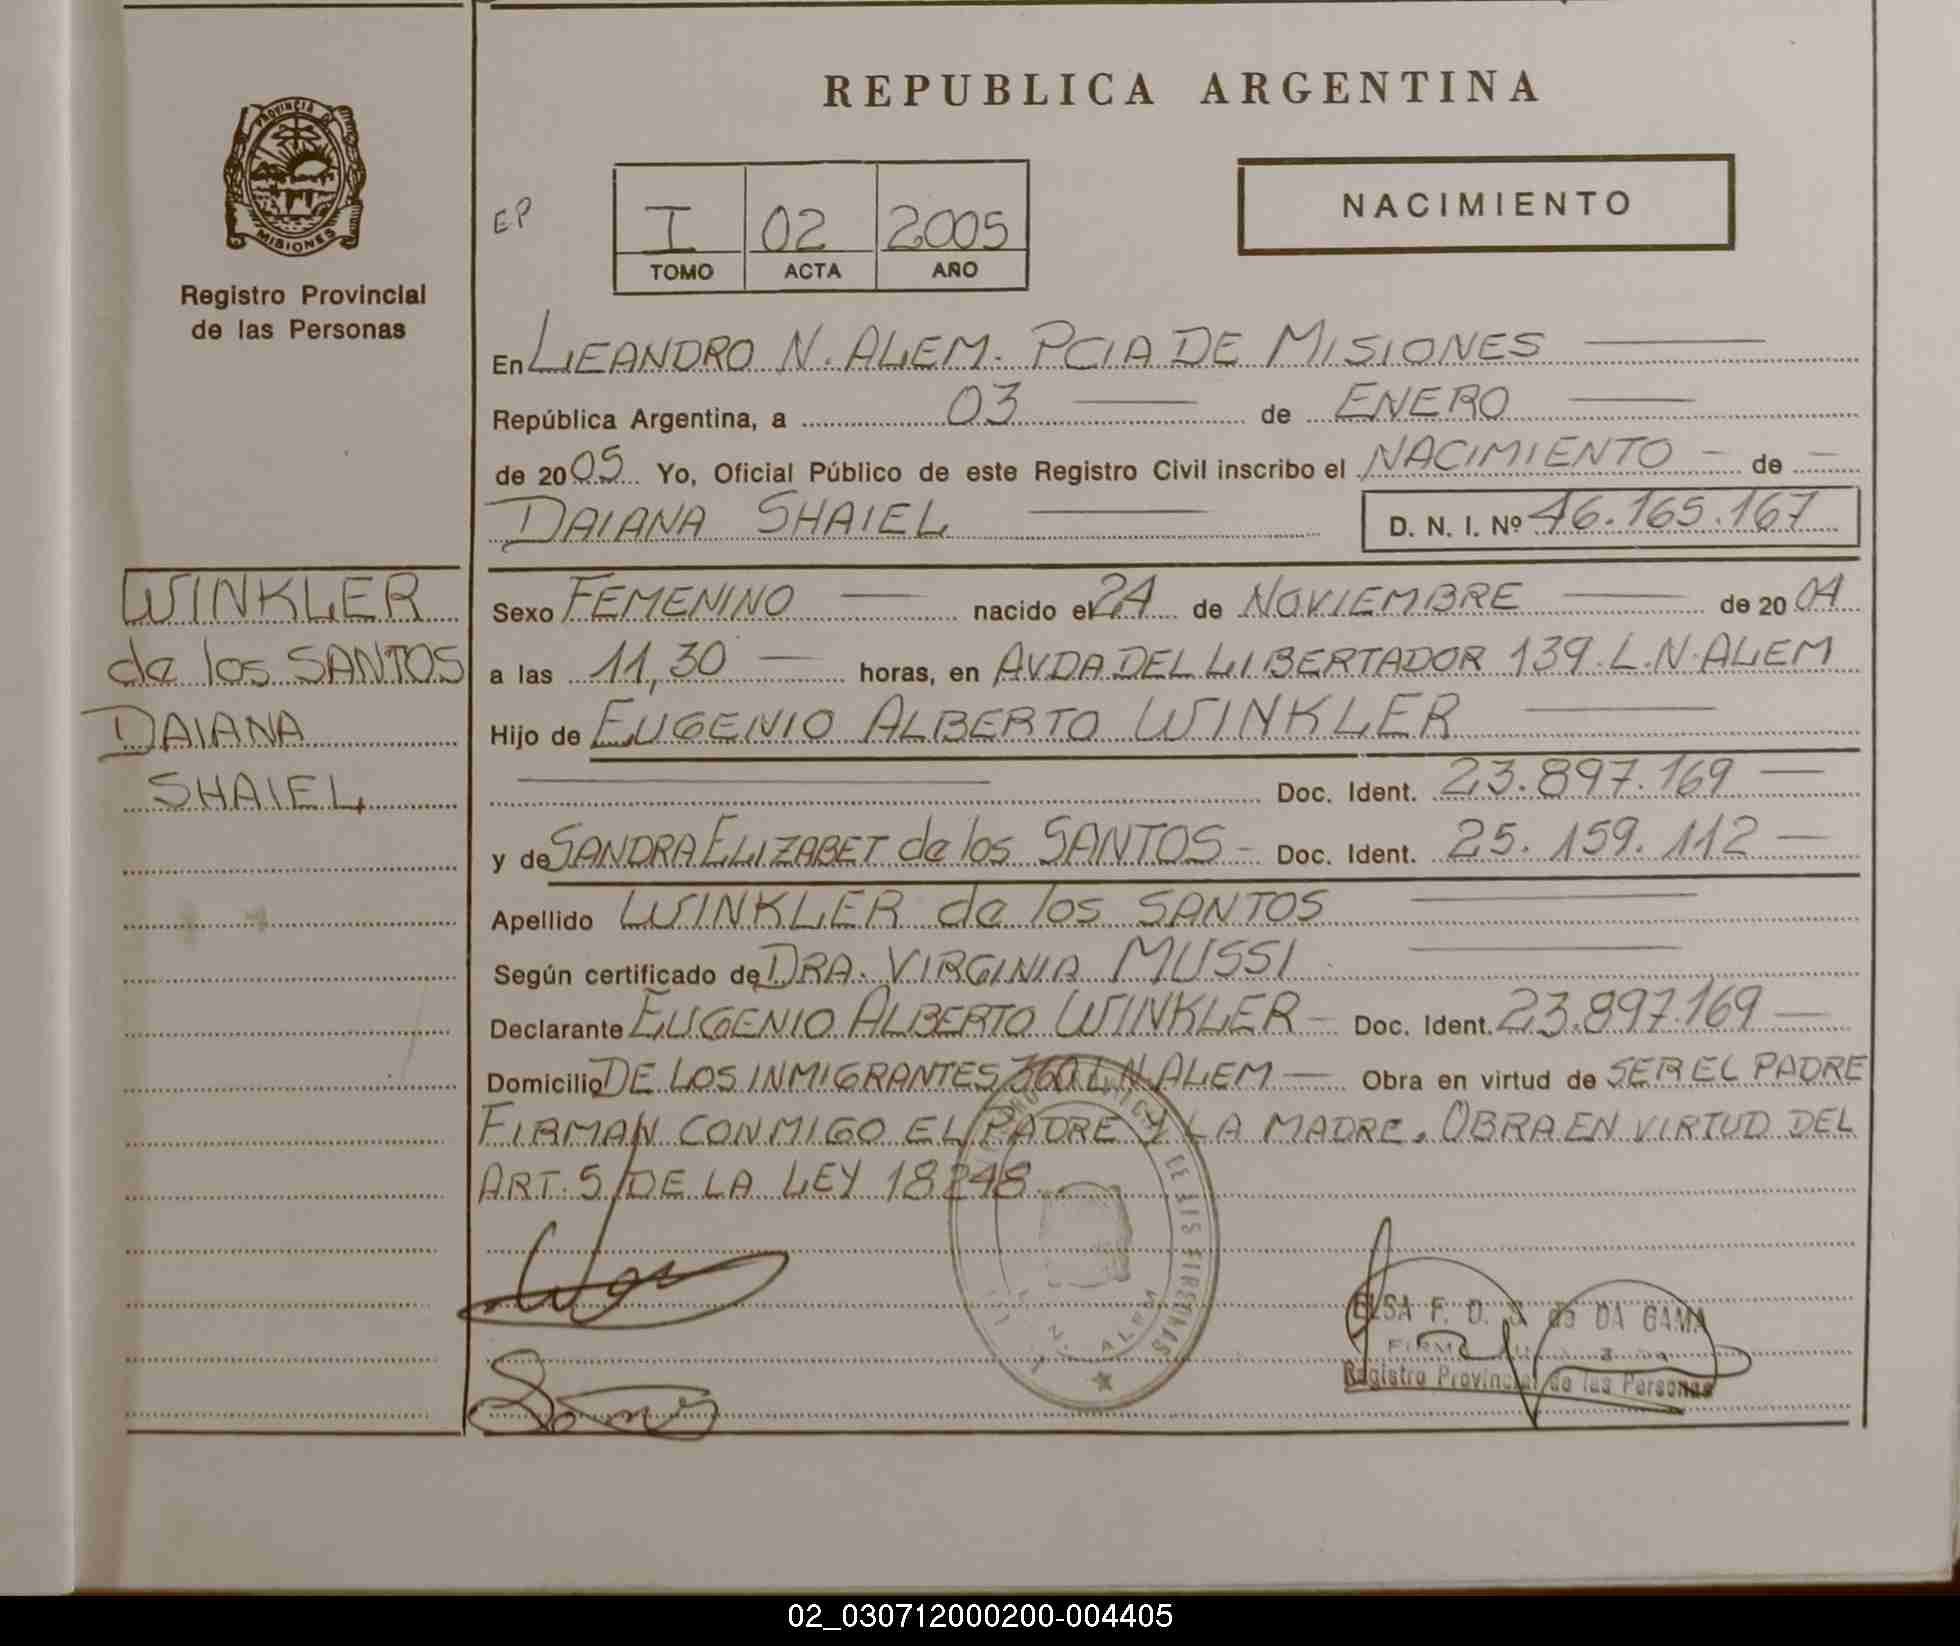 REPUBLICA ARGENTINA
PROVINCIA DE
MISIONES
Registro Provincial
de las Personas
EP
I 02 2005
TOMO ACTA AÑO
NACIMIENTO
En LEANDRO N. ALEM. PCIA DE MISIONES
República Argentina, a 03 de ENERO
de 2005 Yo, Oficial Público de este Registro Civil inscribo el NACIMIENTO de
DAIANA SHAIEL D. N. I. Nº 46.165.167
WINKLER
de los SANTOS
DAIANA
SHAIEL
Sexo FEMENINO nacido el 24 de NOVIEMBRE de 2004
a las 11,30 horas, en AVDA DEL LIBERTADOR 139. L.N. ALEM
Hijo de EUGENIO ALBERTO WINKLER
Doc. Ident. 23.897.169
y de SANDRA ELIZABET de los SANTOS - Doc. Ident. 25.159.112
Apellido WINKLER de los SANTOS
Según certificado de DRA. VIRGINIA MUSSI
Declarante EUGENIO ALBERTO WINKLER - Doc. Ident. 23.897.169
Domicilio DE LOS INMIGRANTES 360 L.N. ALEM Obra en virtud de SER EL PADRE
FIRMAN CONMIGO EL PADRE Y LA MADRE. OBRA EN VIRTUD DEL
ART. 5 DE LA LEY 18248
DE LAS PERSONAS
L. N. ALEM
ELSA F. D. S. de DA GAMA
Registro Provincial de las Personas
02_030712000200-004405